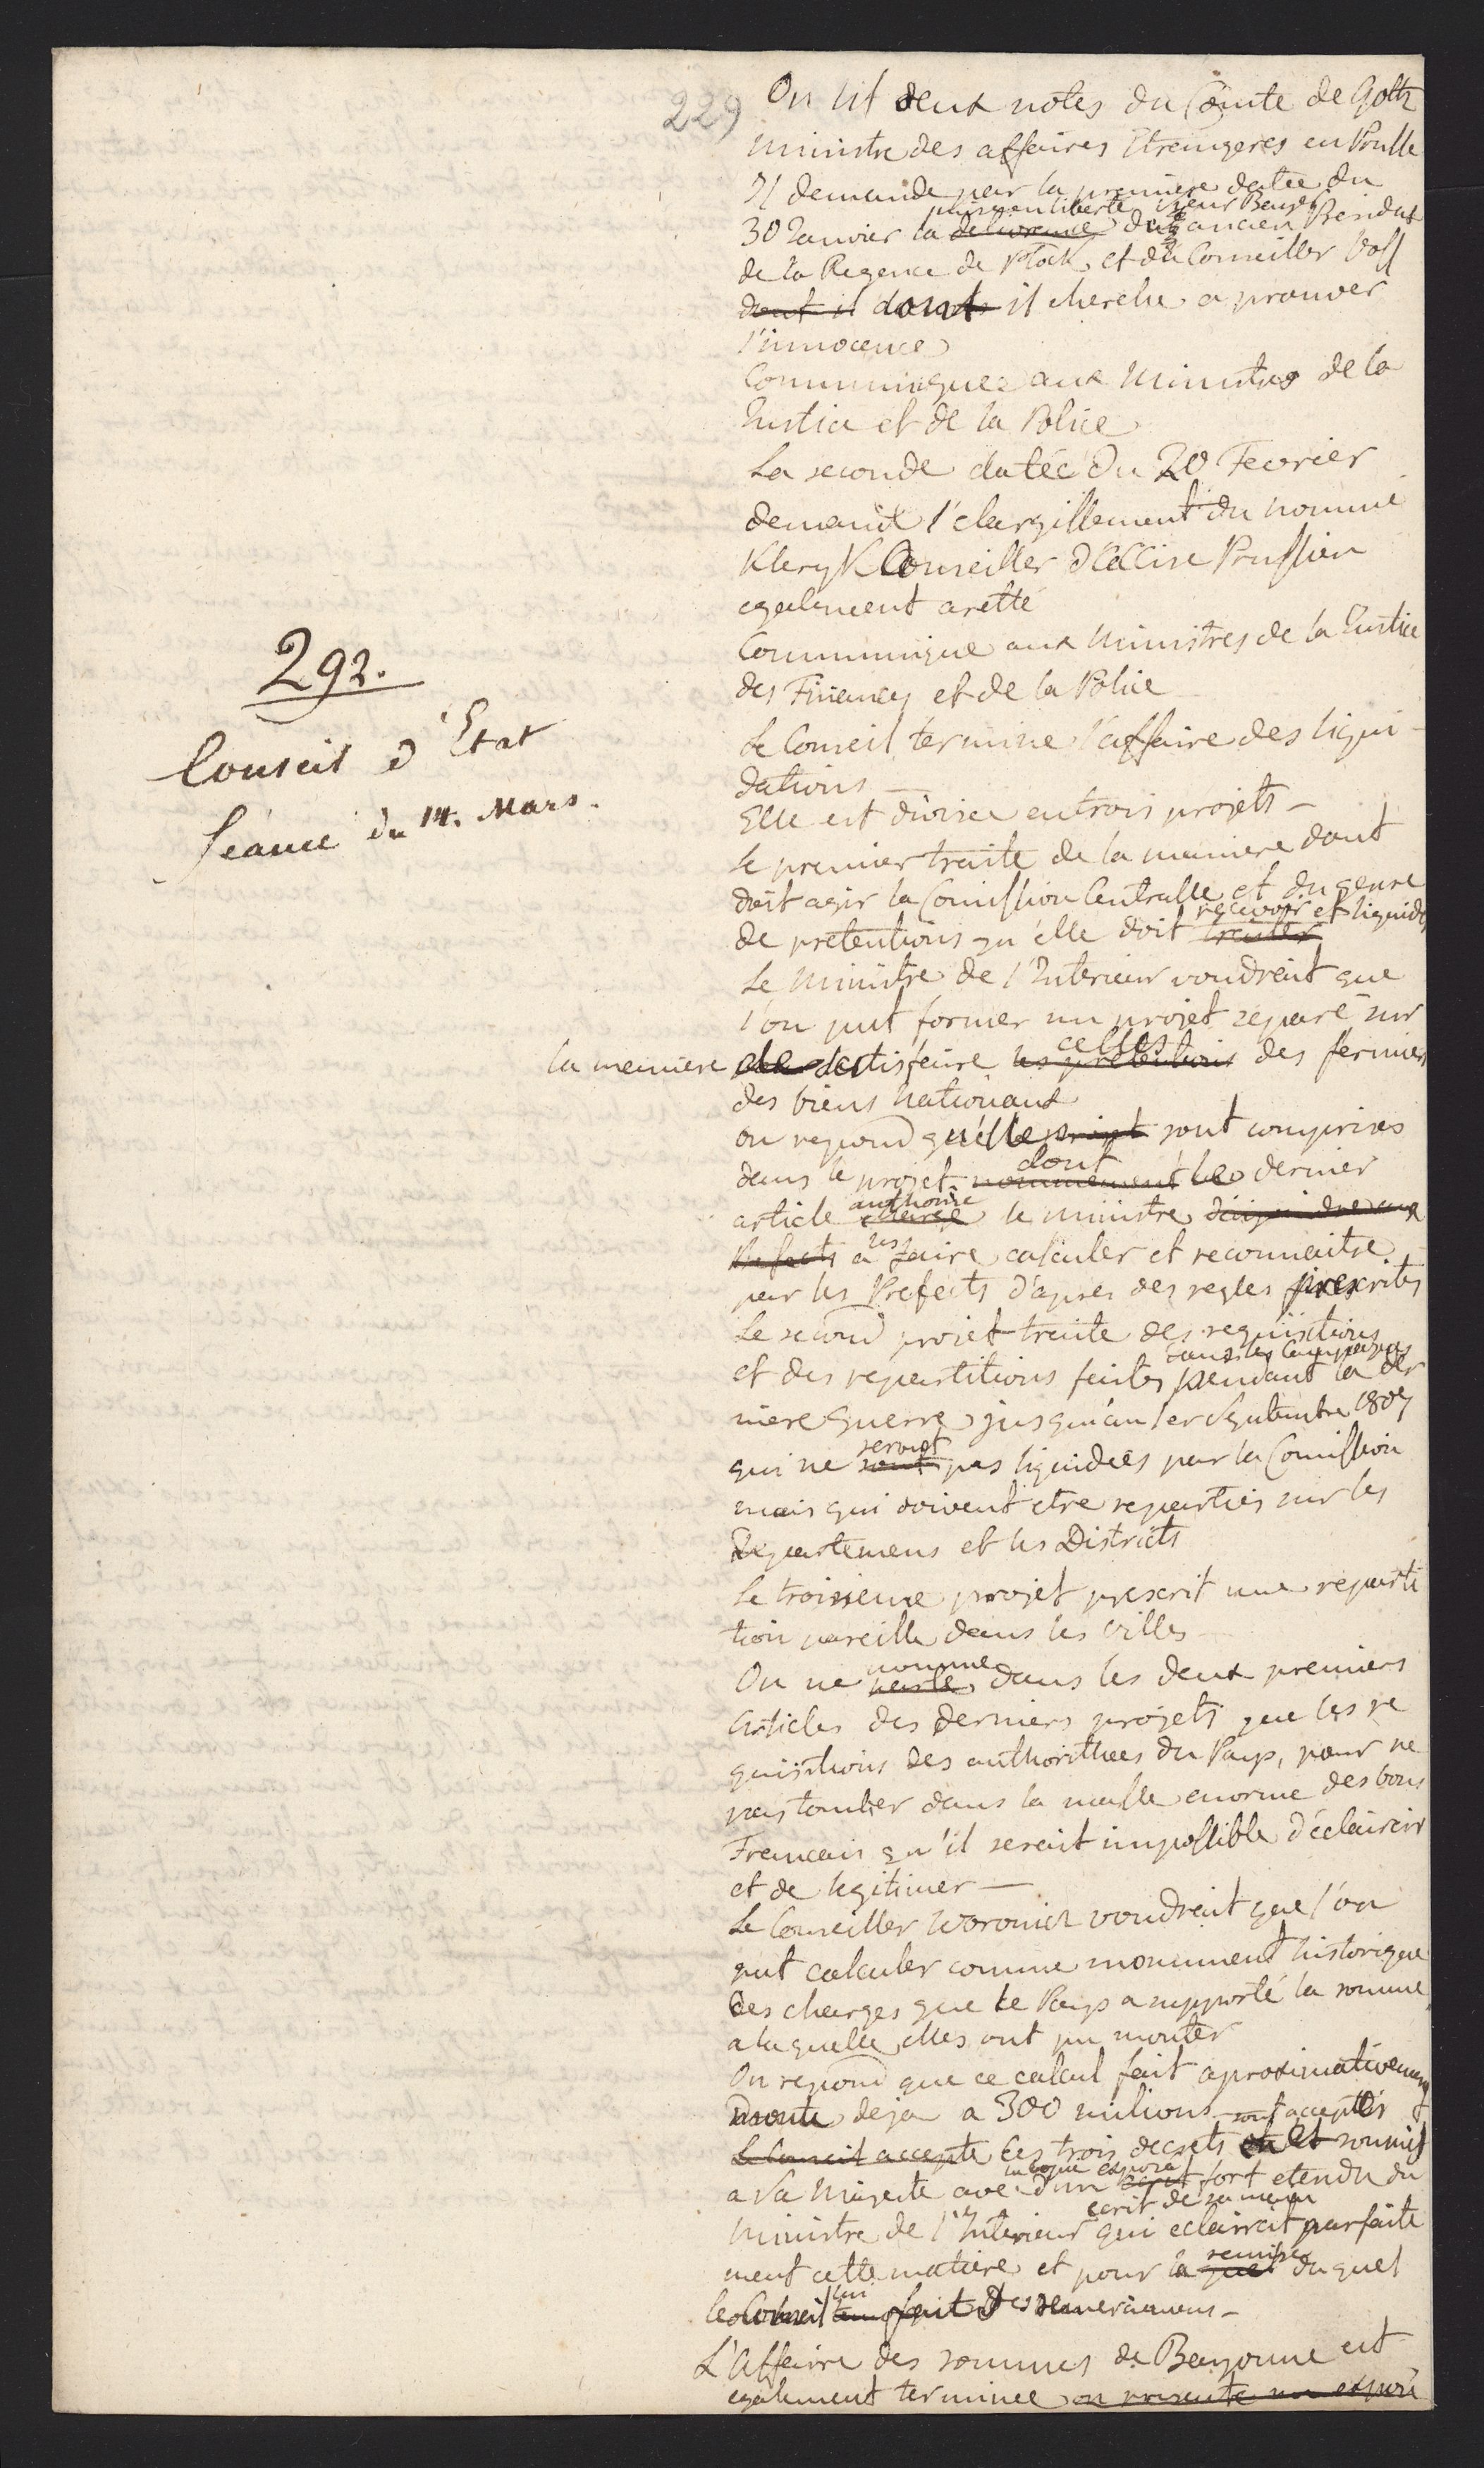 229
On lit deux notes du Comte de Goltz
Ministre des affaires Etrangeres en Prusse
Il demande par la premiere datée du
mise en liberté Sieur Beyer
30 Janvier la delivrance de l'ancien President
de la Regence de Plock, et du Conseiller Voss
dont il dont il cherche a prouver
l'innocence
Communiquée aux Ministres de la
Justice et de la Police
La seconde datée du 20 Fevrier
demande l'elargissement du nommé
Kleryk Conseiller d'accise Prussien
egalement aretté
Communique aux Ministres de la Justice
des Finances et de la Police
292.
Conseil d'Etat
Séance du 14. Mars.
Le Conseil termine l'affaire des liqui-
dations —
Elle est divisée en trois projets —
Le premier traite de la maniere dont
doit agir la Comission Centralle et du genre
recevoir et liquider
de pretentions qu'elle doit traiter
Le Ministre de l'Interieur voudrait que
l'on put former un projet separé sur
celles
la maniere de satisfaire les pretentions des fermiers
des biens Nationaux
on repond qu'elle sont comprises
dont
dans le projet nommement le dernier
authorise
article charge le Ministre d'enjoindre aux
les
Prefects a faire calculer et reconnaitre
par les Prefects d'apres des regles prescrites
Le second projet traite des requisitions
dans les Campagnes
et des repartitions faites pendant la der
niere Guerre jusqu'au 1er Septembre 1807
seront
qui ne sont pas liquidées par la Comission
mais qui doivent etre reparties sur les
Departemens et les Districts
Le troisieme projet prescrit une reparti
tion pareille dans les Villes
nomme
On ne parle dans les deux premiers
Articles des derniers projets que les re
quisitions des authorithees du Pays, pour ne
pas tomber dans la masse enorme des bons
Francais qu'il serait impossible d'eclaircir
et de legitimer —
Le Conseiller Woronicz voudrait que l'on
put calculer comme monument historique
des charges que le Pays a supporté la somme
a laquelle elles ont pu monter
On repond que ce calcul fait aproximativement
monte deja a 300 milions
sont acceptés
Le Conseil accepte Les trois decrets et soumis
exposé
a Sa Majesté avec d'un ecrit fort etendu du
ecrit de sa main
Ministre de l'Interieur qui eclaircit parfaite
remise
ment cette matiere et pour la quel du quel
lui
le Conseil fait des remerciemens —
L'Affaire des sommes de Bayonne est
egalement terminée on presente un exposé